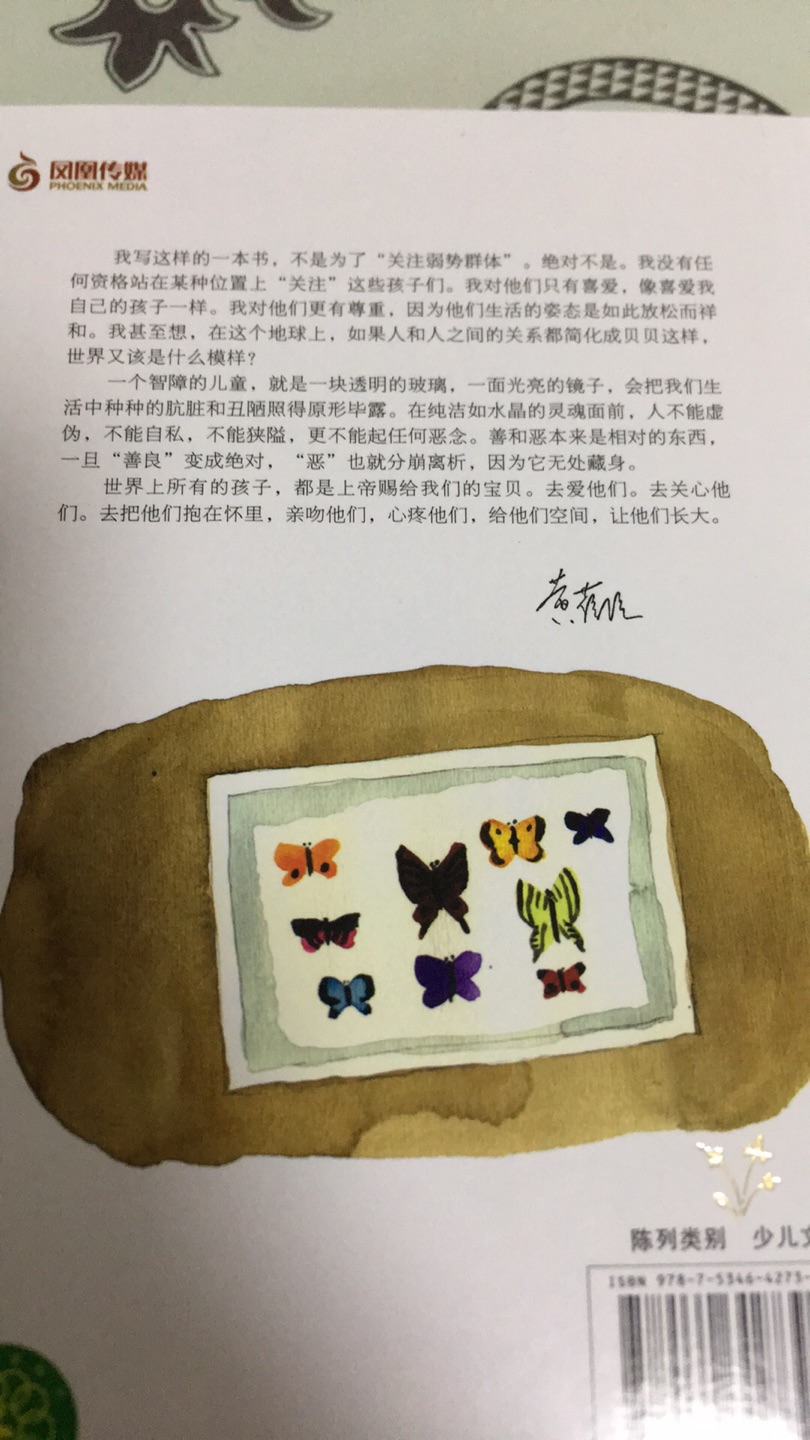 凤凰传媒
PHOENIX MEDIA
我写这样的一本书，不是为了“关注弱势群体”。绝对不是。我没有任
何资格站在某种位置上“关注”这些孩子们。我对他们只有喜爱，像喜爱我
自己的孩子一样。我对他们更有尊重，因为他们生活的姿态是如此放松而祥
和。我甚至想，在这个地球上，如果人和人之间的关系都简化成贝贝这样，
世界又该是什么模样？
一个智障的儿童，就是一块透明的玻璃，一面光亮的镜子，会把我们生
活中种种的肮脏和丑陋照得原形毕露。在纯洁如水晶的灵魂面前，人不能虚
伪，不能自私，不能狭隘，更不能起任何恶念。善和恶本来是相对的东西，
一旦“善良”变成绝对，“恶”也就分崩离析，因为它无处藏身。
世界上所有的孩子，都是上帝赐给我们的宝贝。去爱他们。去关心他
们。去把他们抱在怀里，亲吻他们，心疼他们，给他们空间，让他们长大。
黄蓓佳
陈列类别 少儿文
ISBN 978-7-5346-4273-